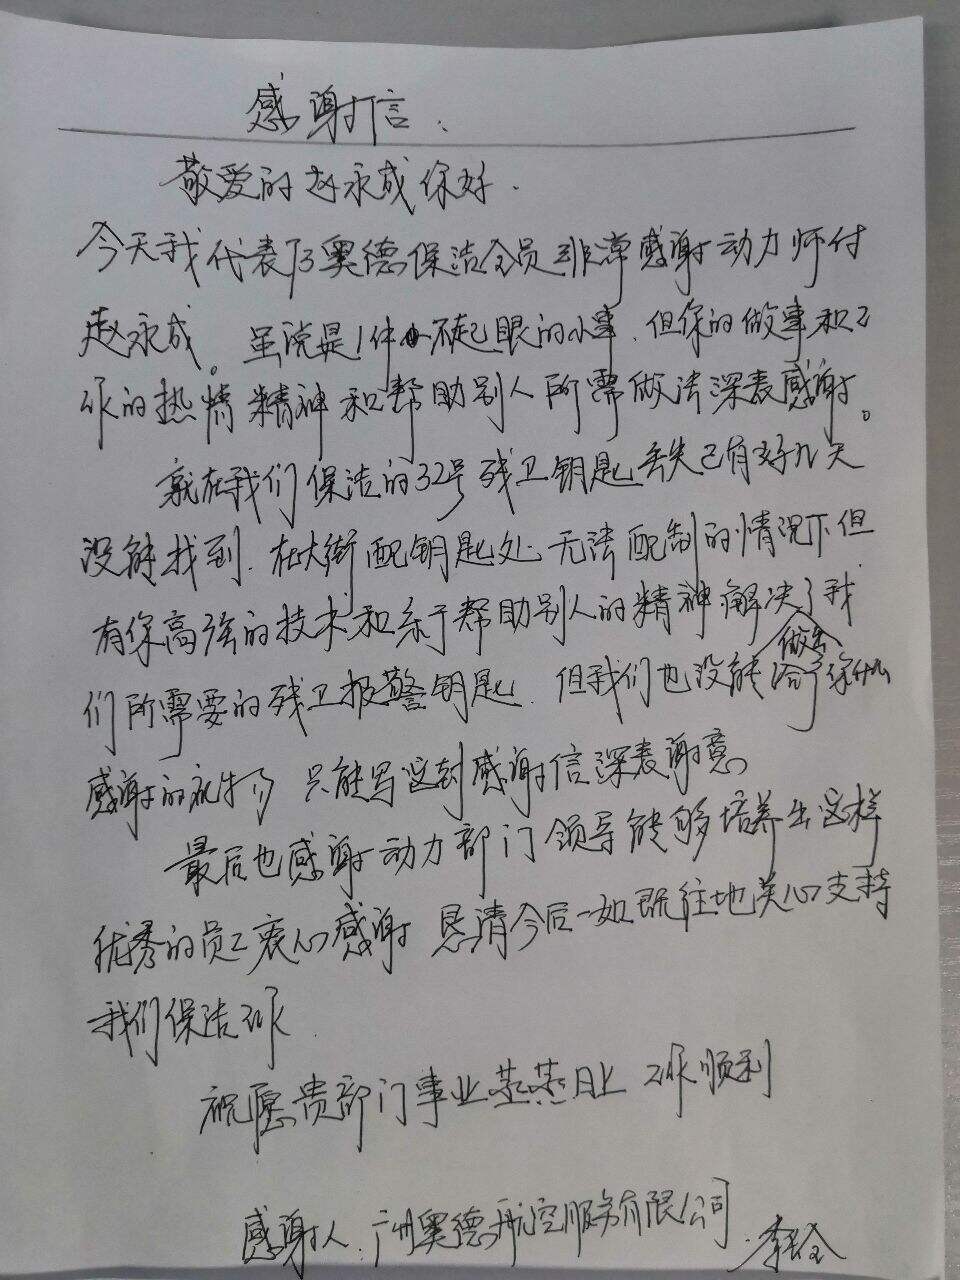 感谢信
敬爱的赵永成你好.
今天我代表了奥德保洁全员非常感谢动力师付
赵永成。虽说是1件不起眼的小事.但你的做事和工
作的热情精神和帮助别人所需做法深表感谢。
就在我们保洁的32号残卫钥匙丢失已有好几天
没能找到.在大街配钥匙处无法配制的情况下但
有你高强的技术和乐于帮助别人的精神解决了我
做出
们所需要的残卫报警钥匙.但我们也没能给予你什么
感谢的礼物 只能写这封感谢信深表谢意
最后也感谢动力部门领导能够培养出这样
优秀的员工衷心感谢 恳请今后一如既往地关心支持
我们保洁工作
祝愿贵部门事业蒸蒸日上 工作顺利
感谢人:广州奥德航空服务有限公司.李全